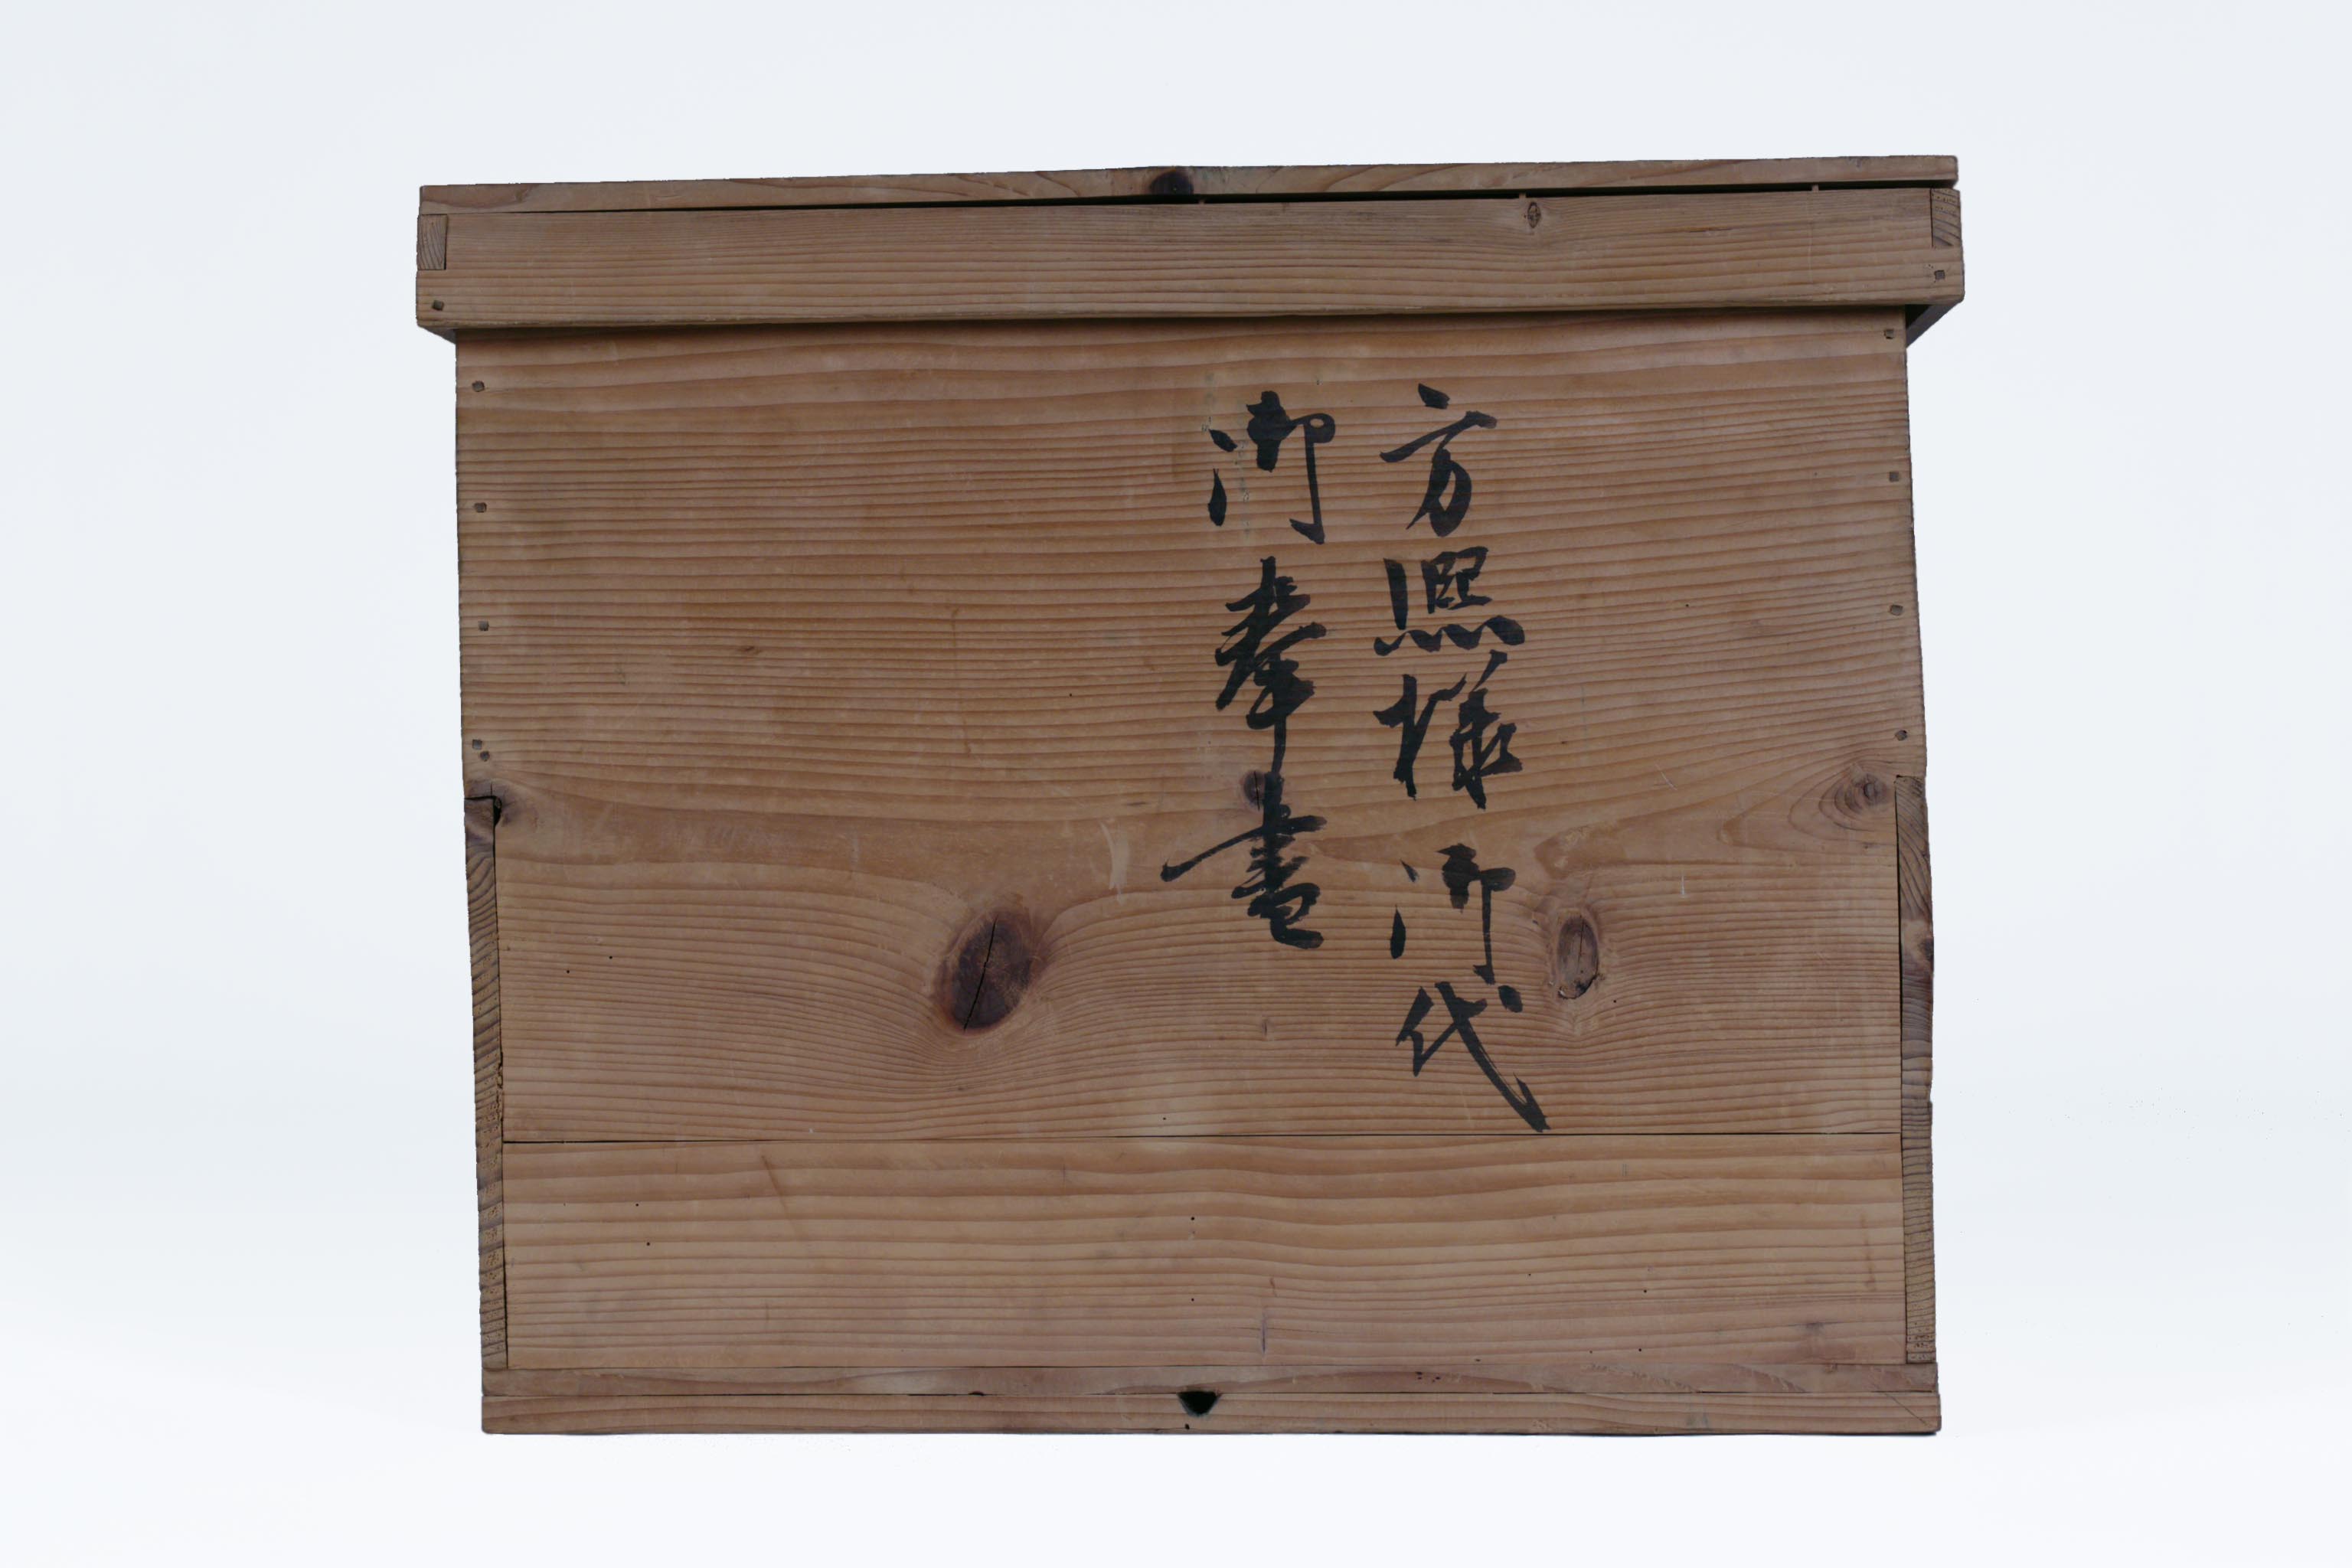 方熈様御代
御奉書